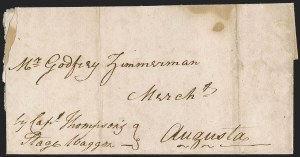 Mr. Godfrey Zimmerman
Merch.t
by Cap.t Thompson's
Stage Waggon } Augusta